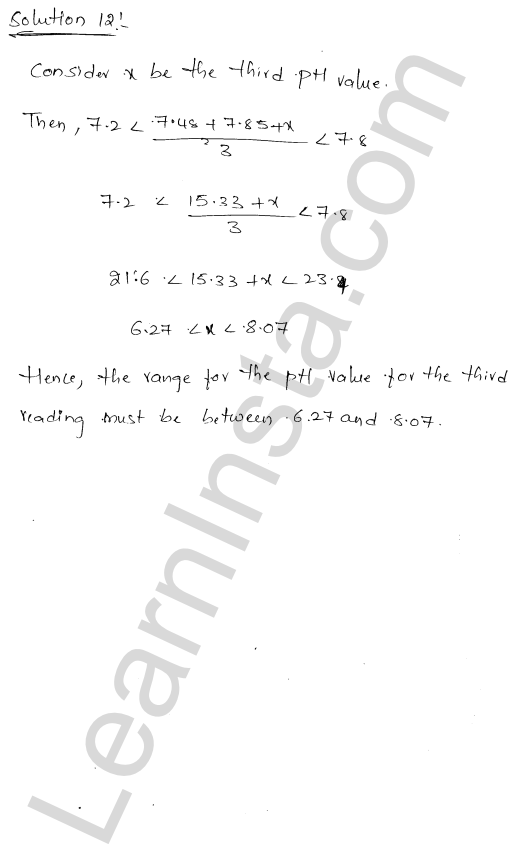 Solution 12:
Consider x be the third pH value.
Then, 7.2 < (7.48 + 7.85 + x)/3 < 7.8
7.2 < (15.33 + x)/3 < 7.8
21.6 < 15.33 + x < 23.4
6.27 < x < 8.07
Hence, the range for the pH value for the third
reading must be between 6.27 and 8.07.
LearnInsta.com